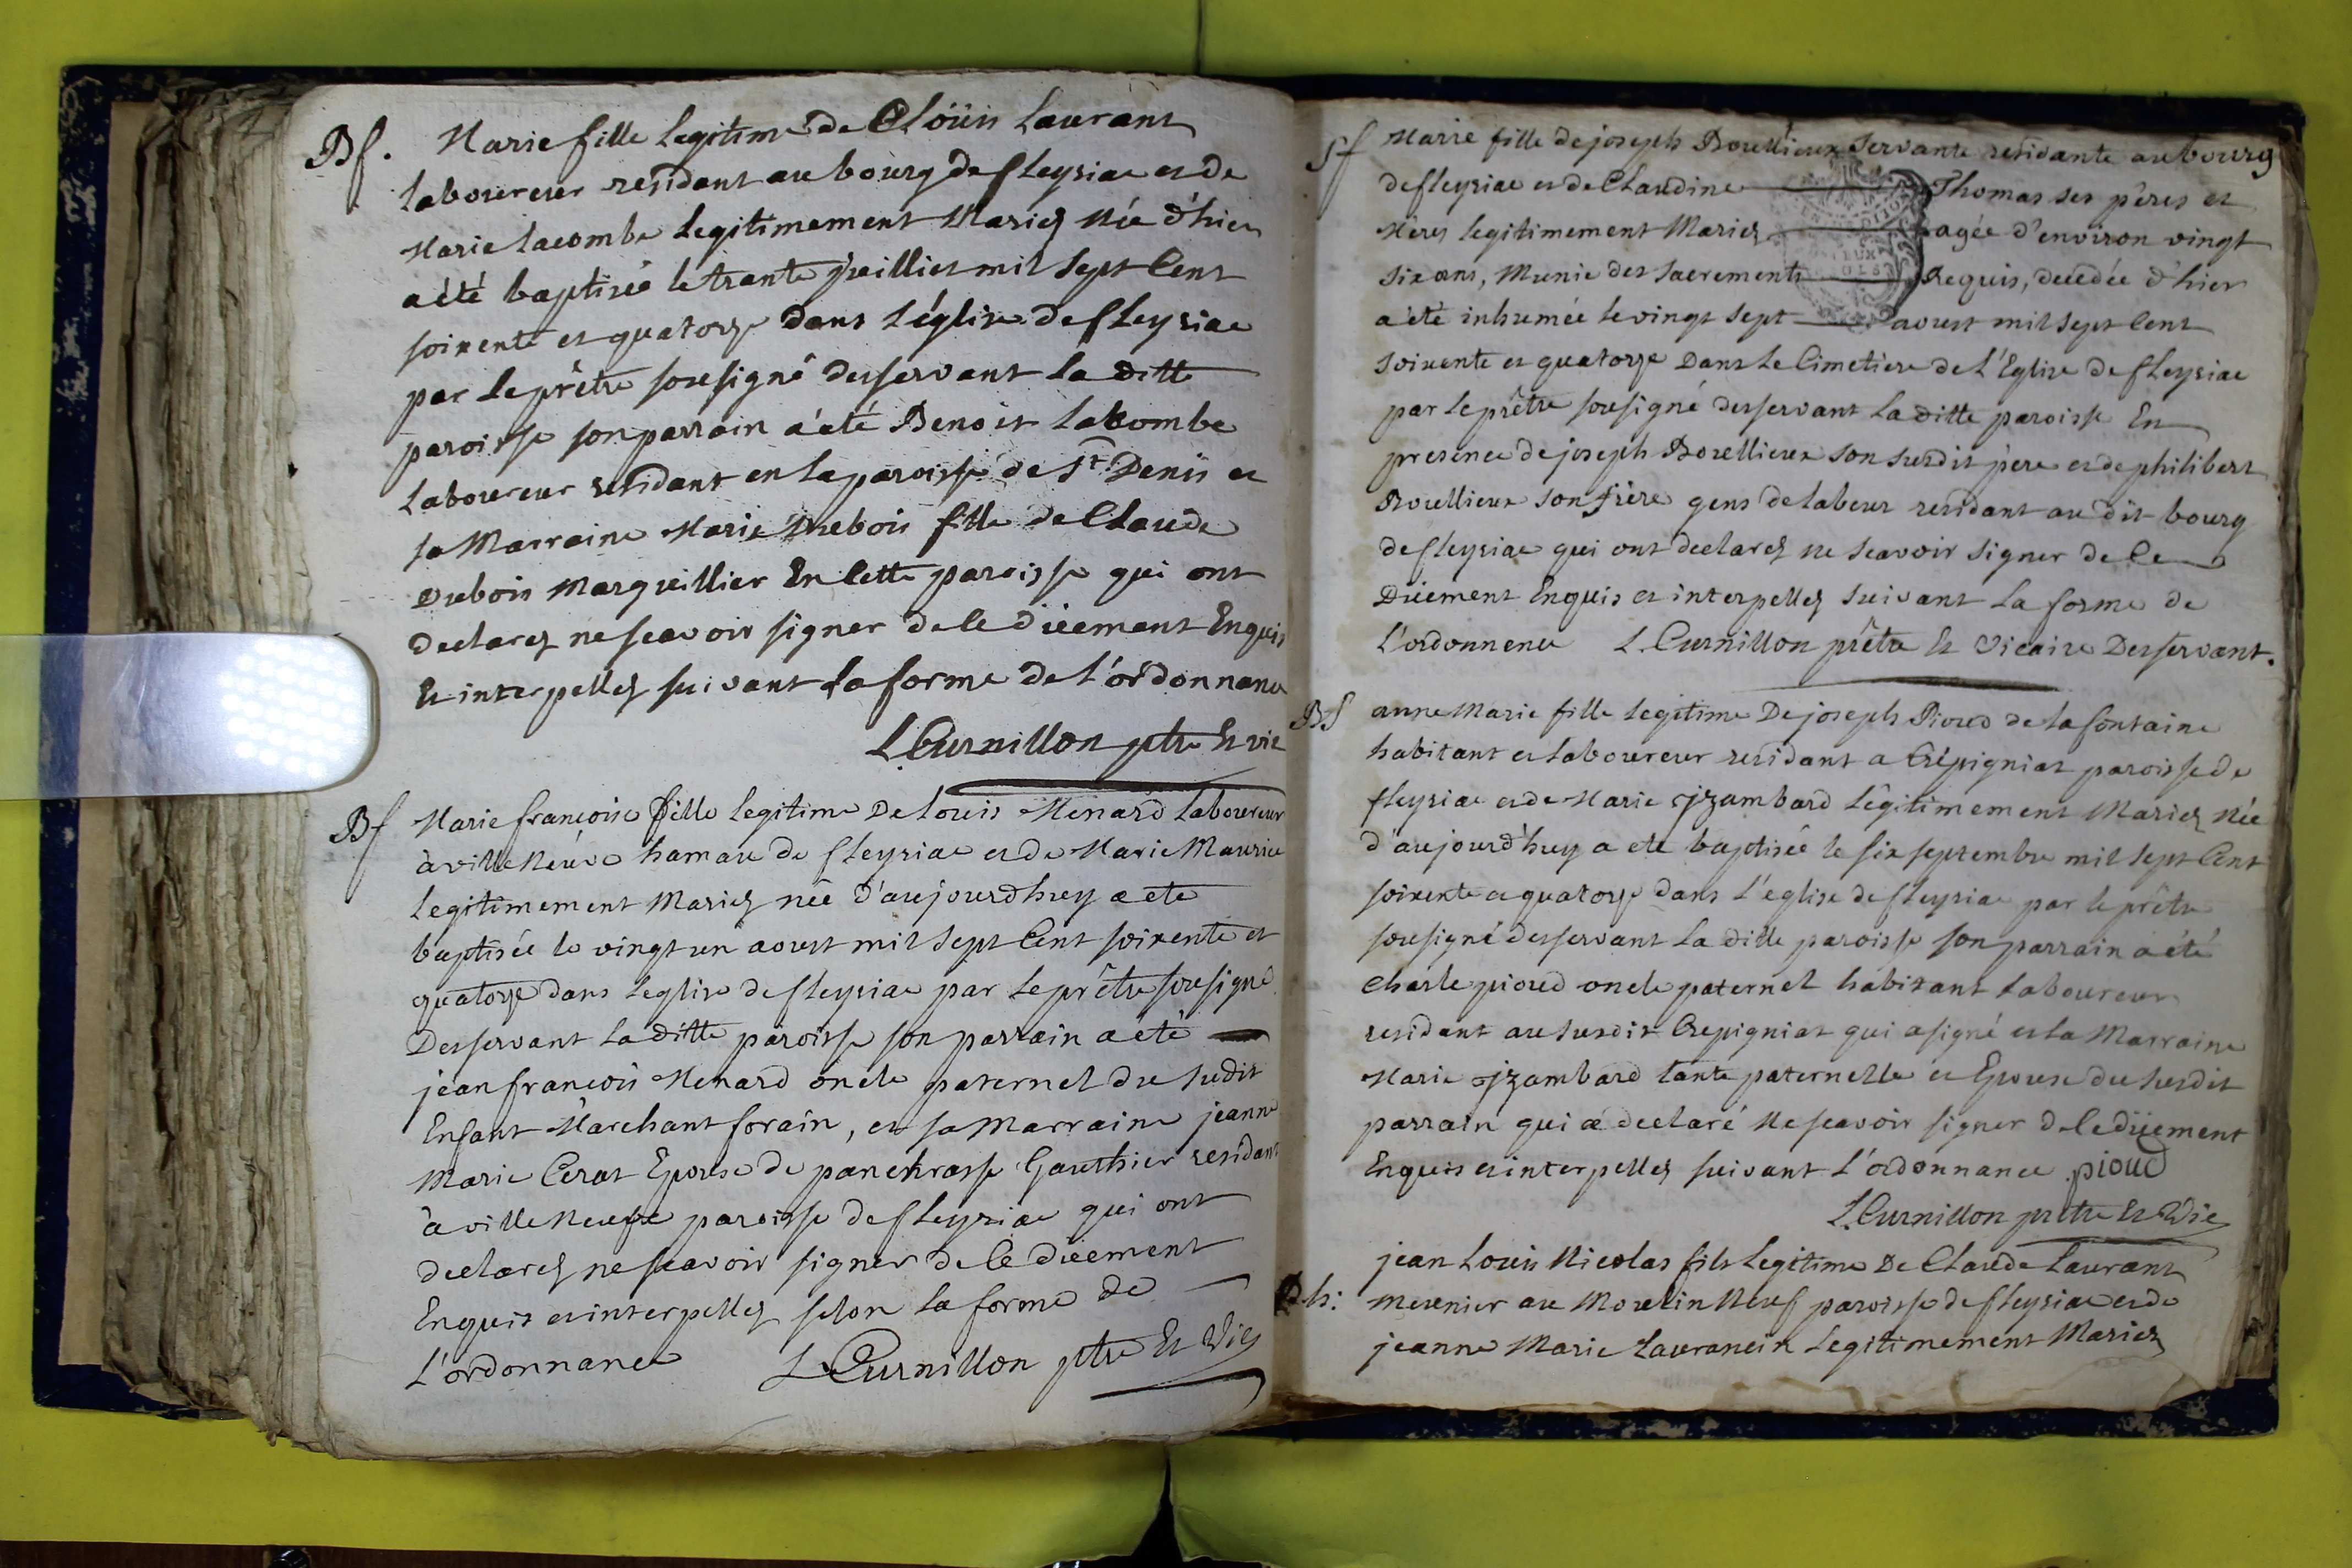 Bf. Marie fille legitime de Cloüis Laurant
laboureur residant au bourg de fleysiac et de
Marie lacombe legitimement Mariez Née d'hier
a été baptiseé le trante jueilliet mil Sept Cent
soixente et quatorze dans l'église de fleysiac
par le prêtre sousigné desservant la ditte
paroisse son parrain a'até Benoit lacombe
laboureur residant en la paroisse de St Denis et
sa Marraine Marie Dubois fille de Claude
Dubois Marguillier En Cette paroisse qui ont
declarez ne scavoir signer de Ce düement Enquis
Et interpellez suivant la forme de l'ordonnance
L Curnillon ptre Et vic
Bf Marie francoise fille legitime De louis Menard laboureur
à ville Neuve hamau de fleysiac et de Marie Maurice
legitimement Mariez née d'aujourdhuy a ete
baptisée le vingt un aoust mil Sept Cent soixente et
quatorze dans leglise de fleysiac par le prêtre sousigné
Desservant la ditte paroisse son parrain a eté
jean francois Menard oncle paternel du sudit
Enfant Marchant forain, et sa Marraine jeanne
Marie Cerat Epouse de panchrasse Gauthier residant
à ville Neufve paroisse de fleysiac qui ont
declarez ne scavoir signer de Ce düement
Enquis et interpellez selon la forme de
l'ordonnance L Curnillon ptre Et Vic
Sf Marie fille de joseph Bouillieux Servante residante au bourg
de fleysiac et de Claudine Thomas ses pères et
Mères legitimement Mariez agée d'environ vingt
six ans, Munie des sacrements Requis, decedée d'hier
a été inhumée le vingt sept aoust mil sept Cent
soixente et quatorze Dans le Cimetiere de l'Eglise de fleysiac
par le prêtre sousigné desservant la ditte paroisse En
presence de joseph Bouellieux son susdit père et de philibert
Bouellieux son frère gens de labeur residant au dit bourg
de fleysiac qui ont declarez ne scavoir signer de Ce
Düement Enquis et interpellez suivant la forme de
l'ordonnence L. Curnillon prêtre Et Vicaire Desservant.
Bf anne Marie fille legitime De joseph Pioud de la fontaine
habitant et laboureur residant a Crépigniat paroisse de
fleysiac et de Marie jzambard légitimement Mariez Née
d'aujourd'huy a eté baptiseé le six septembre mil sept Cent
soixente et quatorze dans l'église de fleysiac par le prêtre
sousigné desservant la ditte paroisse son parrain a été
Charle pioud oncle paternel habitant laboureur
residant au susdit Crepigniat qui a signé et la Marraine
Marie jzambard tante paternelle et Epouse du susdit
parrain qui a declaré Ne scavoir signer de Ce düement
Enquis et interpellez suivant l'ordonnance . pioud
L. Curnillon prêtre Et Vic
jean Louis Nicolas fils legitime De Claude laurant
meunier au Moulin Neuf paroisse de fleysiac et de
jeanne Marie laurancin legitimement Mariez